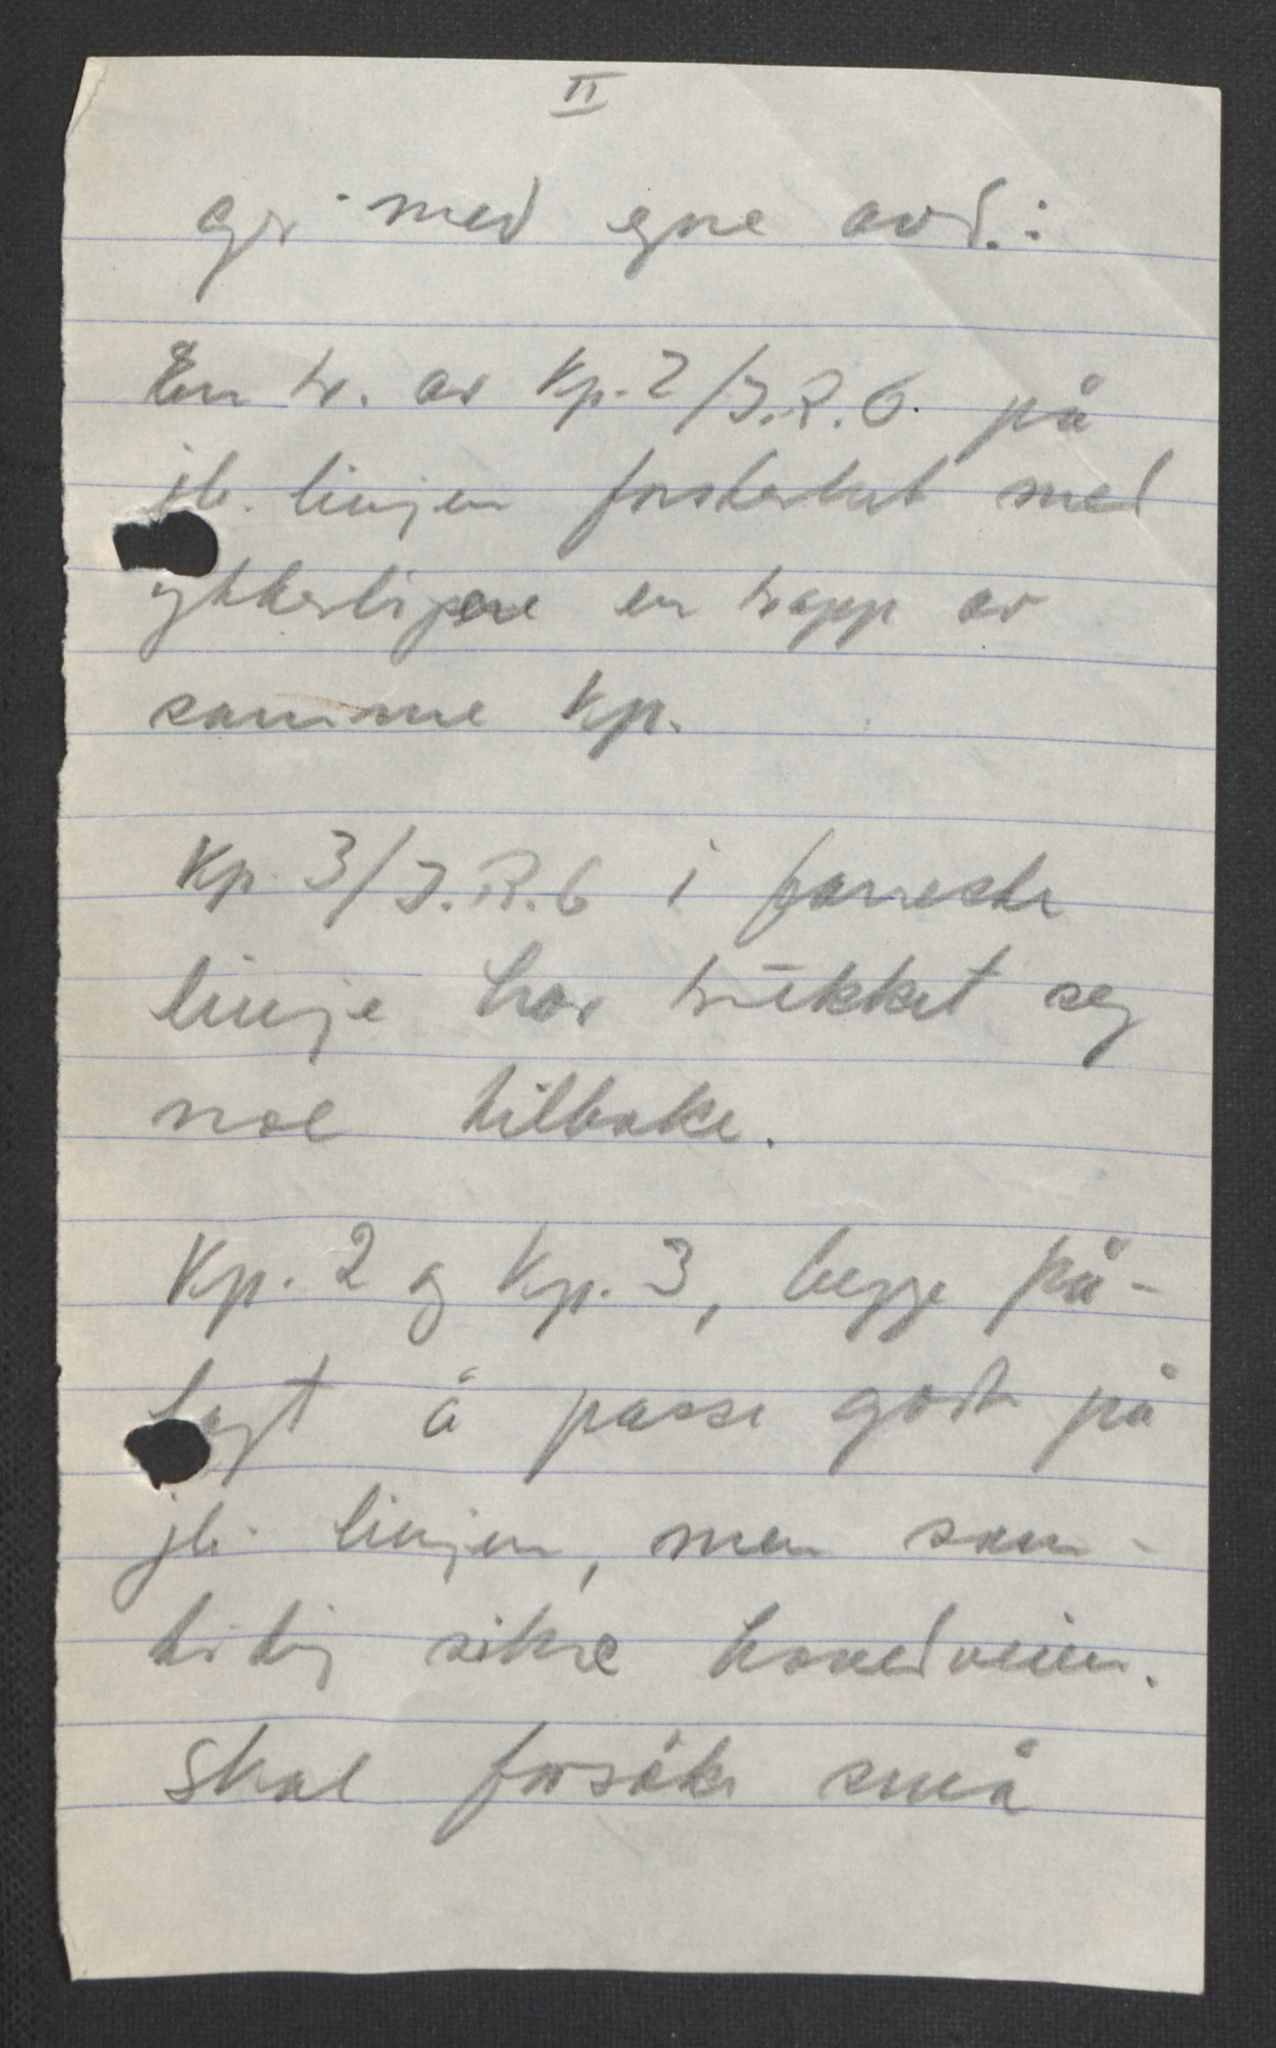 II
gr. med egne avd.:
En tr. av Kp. 2/I.R. 6. på
jb. linjen forsterket med
ytterligere en tropp av
samme Kp.
Kp. 3/I.R. 6 i forreste
linje har trukket seg
noe tilbake.
Kp. 2 og Kp. 3, begge på-
lagt å passe godt på
jb. linjen, men sam-
tidig sikre hovedveien.
Skal forsöke små